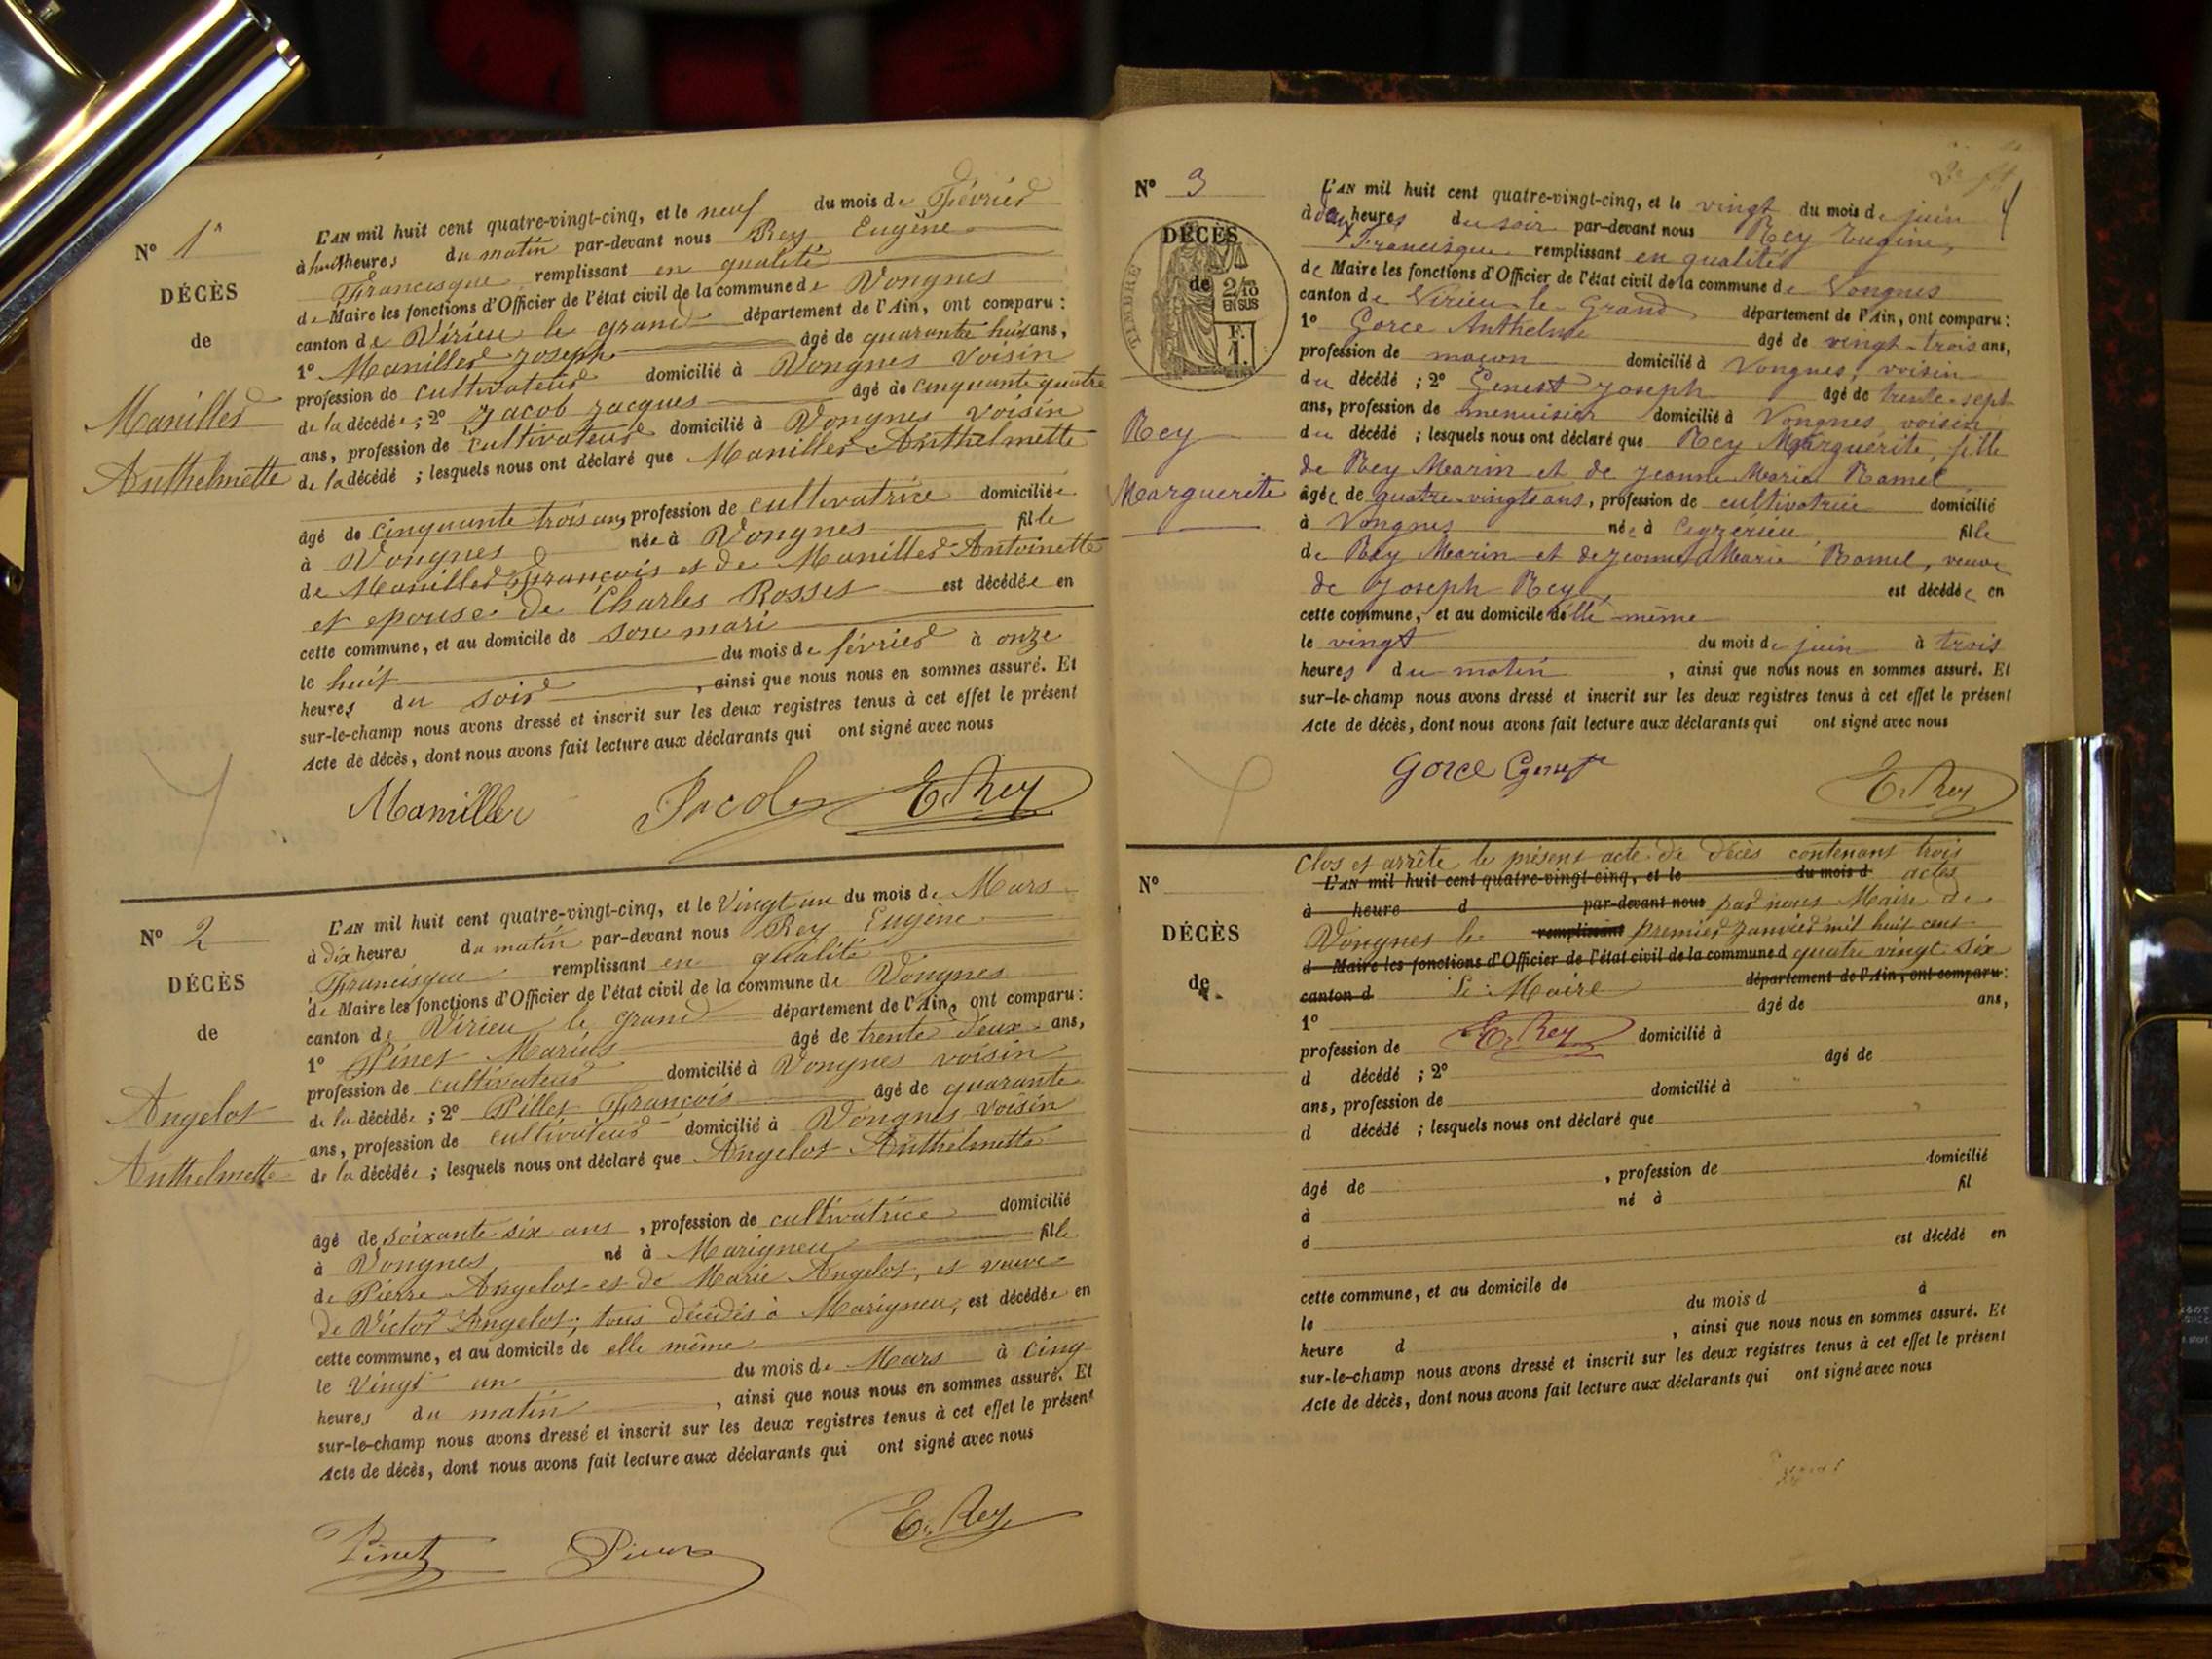 N° 1er
DÉCÈS
de
Manillier
Anthelmette
L'AN mil huit cent quatre-vingt-cinq, et le neuf du mois de Février
à huit heures du matin par-devant nous Rey Eugène
Francisque remplissant en qualité
de Maire les fonctions d'Officier de l'état civil de la commune de Vongnes
canton de Virieu le grand département de l'Ain, ont comparu :
1° Manillier Joseph âgé de quarante huit ans,
profession de cultivateur domicilié à Vongnes voisin
de la décédée ; 2° Jacob Jacques âgé de cinquante quatre
ans, profession de cultivateur domicilié à Vongnes voisin
de la décédé ; lesquels nous ont déclaré que Manillier Anthelmette
âgé de cinquante trois ans, profession de cultivatrice domiciliée
à Vongnes née à Vongnes fille
de Manillier François et de Manillier Antoinette
et epouse de Charles Rosset est décédée en
cette commune, et au domicile de son mari
le huit du mois de février à onze
heures du soir , ainsi que nous nous en sommes assuré. Et
sur-le-champ nous avons dressé et inscrit sur les deux registres tenus à cet effet le présent
Acte de décès, dont nous avons fait lecture aux déclarants qui ont signé avec nous
Manillier Jacob E. Rey
N° 2
DÉCÈS
de
Angelot
Anthelmette
L'AN mil huit cent quatre-vingt-cinq, et le Vingt un du mois de Mars
à dix heures du matin par-devant nous Rey Eugène
Francisque remplissant en qualité
de Maire les fonctions d'Officier de l'état civil de la commune de Vongnes
canton de Virieu le grand département de l'Ain, ont comparu :
1° Pinet Marius âgé de trente deux ans,
profession de cultivateur domicilié à Vongnes voisin
de la décédée ; 2° Pillet François âgé de quarante
ans, profession de cultivateur domicilié à Vongnes voisin
de la décédée ; lesquels nous ont déclaré que Angelot Anthelmette
âgé de soixante six ans , profession de cultivatrice domicilié
à Vongnes né à Marigneu fille
de Pierre Angelot et de Marie Angelot, et veuve
de Victor Angelot, tous décédés à Marigneu, est décédée en
cette commune, et au domicile de elle même
le Vingt un du mois de Mars à cinq
heures du matin , ainsi que nous nous en sommes assuré. Et
sur-le-champ nous avons dressé et inscrit sur les deux registres tenus à cet effet le présent
Acte de décès, dont nous avons fait lecture aux déclarants qui ont signé avec nous
Pinet E. Rey
N° 3
DÉCÈS
de
TIMBRE
2/10
EN SUS
F.
1.
Rey
Marguerite
L'AN mil huit cent quatre-vingt-cinq, et le vingt du mois de juin
à deux heures du soir par-devant nous Rey Eugine,
Francisque remplissant en qualité
de Maire les fonctions d'Officier de l'état civil de la commune de Vongnes
canton de Virieu-le-Grand département de l'Ain, ont comparu :
1° Gorce Anthelme âgé de vingt-trois ans,
profession de maçon domicilié à Vongnes, voisin
du décédé ; 2° Genest Joseph âgé de trente-sept
ans, profession de menuisier domicilié à Vongnes, voisin
du décédé ; lesquels nous ont déclaré que Rey Marguerite, fille
de Rey Marin et de Jeanne Marie Ramel
âgée de quatre-vingts ans, profession de cultivatrice domicilié
à Vongnes née à Ceyzérieu fille
de Rey Marin et de Jeanne Marie Ramel, veuve
de Joseph Rey, est décédée en
cette commune, et au domicile d'elle même
le vingt du mois de juin à trois
heures du matin , ainsi que nous nous en sommes assuré. Et
sur-le-champ nous avons dressé et inscrit sur les deux registres tenus à cet effet le présent
Acte de décès, dont nous avons fait lecture aux déclarants qui ont signé avec nous
Gorce Genest E. Rey
N°
DÉCÈS
de
Clos et arrête le présent acte de décès contenant trois
L'AN mil huit cent quatre-vingt-cinq, et le du mois d actes
à heure d par-devant nous par nous Maire de
Vongnes le remplissant premier Janvier mil huit cent
d Maire les fonctions d'Officier de l'état civil de la commune d quatre vingt six
canton d Le Maire département de l'Ain, ont comparu :
1° âgé de ans,
profession de E. Rey domicilié à
d décédé ; 2° âgé de
ans, profession de domicilié à
d décédé ; lesquels nous ont déclaré que
âgé de , profession de domicilié
à né à fil
d est décédé en
cette commune, et au domicile de
le du mois d à
heure d , ainsi que nous nous en sommes assuré. Et
sur-le-champ nous avons dressé et inscrit sur les deux registres tenus à cet effet le présent
Acte de décès, dont nous avons fait lecture aux déclarants qui ont signé avec nous